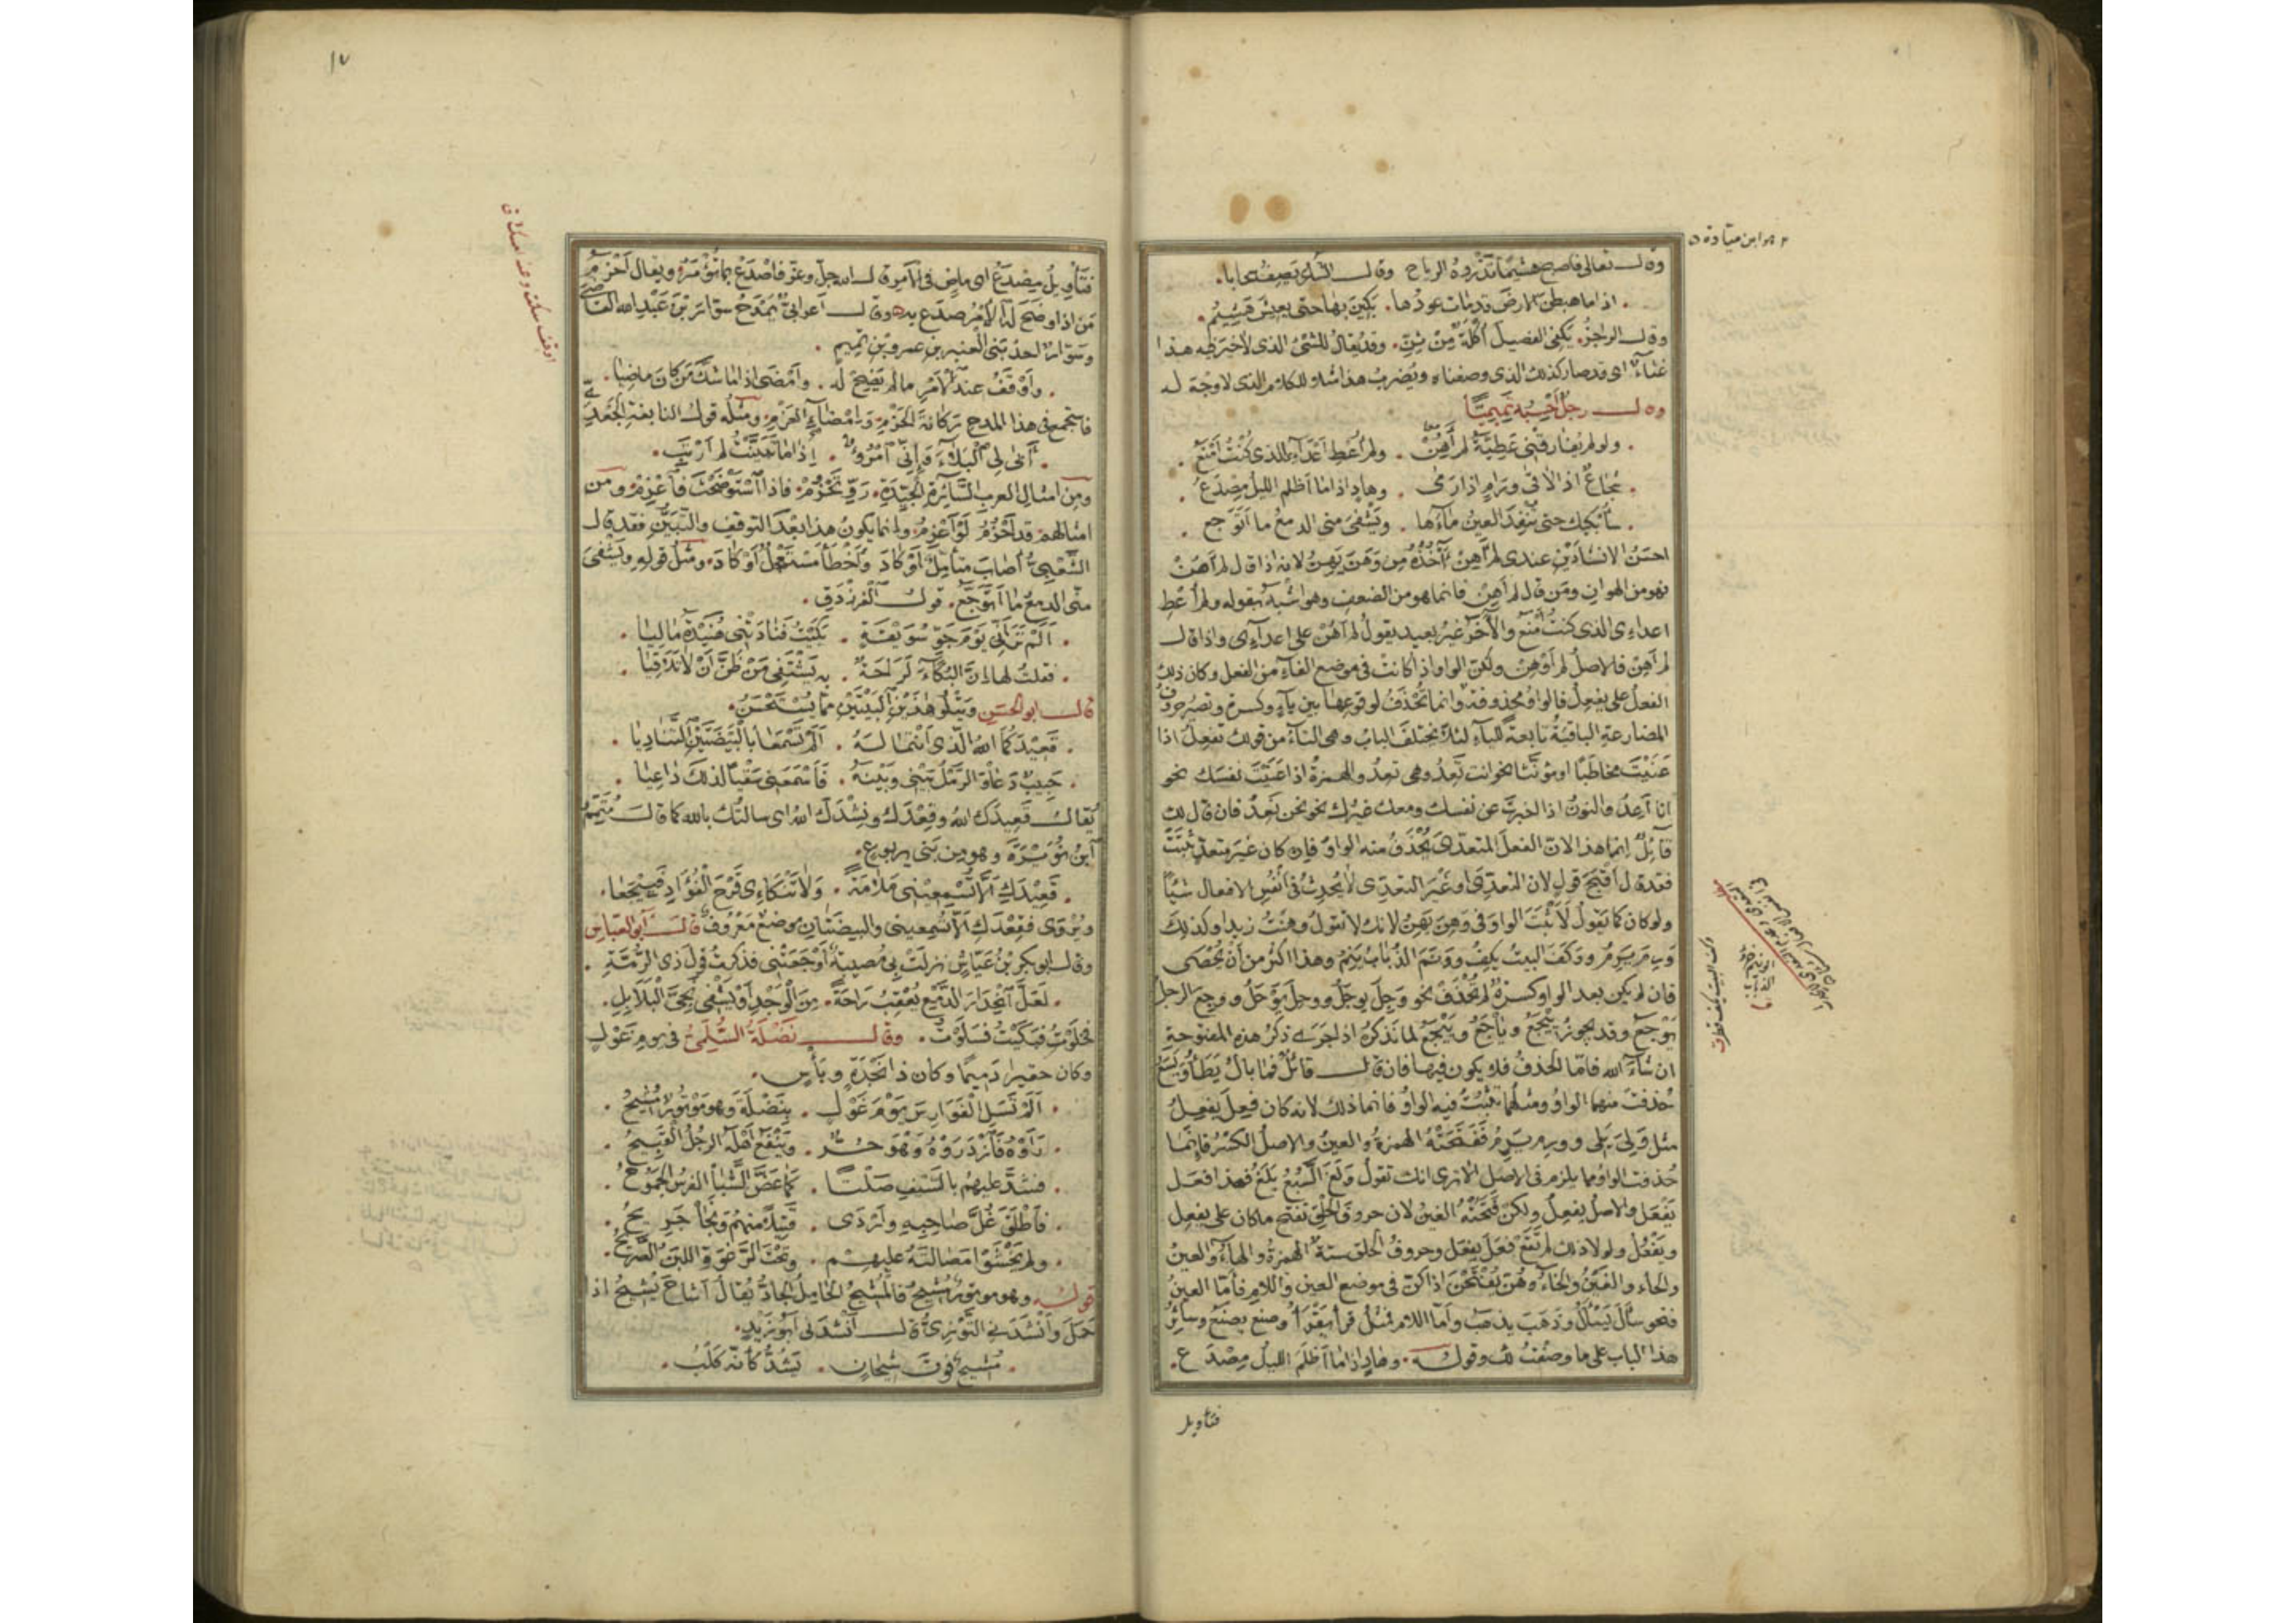 وقال تعالى فاصبح هشيما تذروه الرياح وقال الشاعر يصف سحابا
اذا ما هبطن الارض قد مات عودها بكين بها حتى يعيش هشيم
وقال الراجز يكفى الفصيل أكلة من ثن وقد يقال للشئ الذى لا خير فيه هذا
غثاء اى قد صار كذلك الذى وصفناه ويضرب هذا مثلا للكلام الذى لا وجه له
وقال رجل أحسبه تميميا
ولو لم يفارقنى عطية لم أهن ولم أعط أعدائى الذى كنت أمنع
شجاع اذا لاقى ورام اذا رمى وهاد اذا ما أظلم الليل مصدع
سأبكيك حتى تنفد العين ماءها ويشفى منى الدمع ما أتوجع
احسن الانشادين عندى لم أهن تأخذه من وهن يهن لانه اذا قال لم أهن
فهو من الهوان ومن قال لم أهن فانما هو من الضعف وهو اشبه بقوله ولم أعط
اعداءى الذى كنت أمنع والآخر غير بعيد يقول لم أهن على اعداءى واذا قال
لم أهن فالاصل لم أوهن ولكن الواو اذا كانت فى موضع الفاء من الفعل وكان ذلك
الفعل على يفعل فالواو محذوفة وانما تحذف لوقوعها بين ياء وكسرة وتصير حروف
المضارعة الباقية تابعة للياء لئلا يختلف الباب وهى التاء من قولك تفعل اذا
عنيت مخاطبا او مؤنثا نحو انت تعد وهى تعد والهمزة اذا عنيت نفسك نحو
انا أعد والنون اذا اخبرت عن نفسك ومعك غيرك نحو نحن نعد فان قال لك
قائل إنما هذا لان الفعل المتعدى يحذف منه الواو فان كان غير متعد ثبتت
فقد قال أقبح قول لان المتعدى او غير المتعدى لا يحدث فى أنفس الافعال شيئا
ولو كان كما يقول لأثبت الواو فى وهن يهن لانك لا تقول وهنت زيدا وكذلك
ورم يرم ووكف البيت يكف وونم الذباب ينم وهذا اكثر من أن يحصى
فان لم يكن بعد الواو كسرة لم تحذف نحو وجل يوجل ووحل يوحل ووجع الرجل
يوجع وقد يجوز ييجع وياجع وييجع لما نذكره اذا جرى ذكر هذه المفتوحة
ان شاء الله فاما الحذف فلا يكون فيها فان قال قائل فما بال يطأ ويسع
حذفت منهما الواو ومثلهما تثبت فيه الواو فانما ذلك لانه كان فعل يفعل
مثل ولى يلى وورم يرم ففتحته الهمزة والعين والاصل الكسر فإنما
حذفت الواو مما يلزم فى الاصل ألا ترى انك تقول ولغ السبع يلغ فهذا فعل
يفعل والاصل يفعل ولكن فتحته الغين لان حروف الحلق تفتح ما كان على يفعل
ويفعل ولولا ذلك لم تقع فعل يفعل وحروف الحلق ستة الهمزة والهاء والعين
والحاء والغين والخاء وهن يفتحن اذا كن فى موضع العين واللام فأما العين
فنحو سأل يسأل وذهب يذهب وأما اللام فمثل قرأ يقرأ وصنع يصنع وسائر
هذا الباب على ما وصفت لك وقوله وهاد اذا ما أظلم الليل مصدع
فتأويل
هو ابن ميادة
وكف البيت يكف قطر
١٧
فتأويل مصدع اى ماض فى الامر قال الله جل وعز فاصدع بما تؤمر ويقال أحزم
من اذا وضح له الامر صدع به وقال أعرابى يمدح سوار بن عبد الله القاضى
وسوار احد بنى العنبر بن عمرو بن تميم
وأوقف عند الأمر ما لم يضح له وأمضى اذا ما شك من كان ماضيا
فاستجمع فى هذا المدح ركانة الحزم وامضاء العزم ومثله قول النابغة الجعدى
أبى لى البلاء وإنى امرؤ إذا ما تبينت لم أرتب
ومن امثال العرب السائرة الجيدة رو تحزم فاذا استوضحت فاعزم ومن
امثالهم قد أحزم لو أعزم وانما يكون هذا بعد التوقف والتبين فقد قال
الشعبى أصاب متأمل أو كاد وأخطأ مستعجل أو كاد ومثل قوله ويشفى
منى الدمع ما أتوجع قول الفرزدق
ألم ترنى يوم جو سويقة بكيت فنادتنى هنيدة ماليا
فقلت لها ان البكاء لراحة به يشتفى من ظن أن لا تلاقيا
قال ابو الحسن ويتلو هذين البيتين مما يستحسن
قعيدكما الله الذى أنتما له ألم تسمعا بالبيضتين المناديا
حبيب دعا والرمل بينى وبينه فأسمعنى سقيا لذلك داعيا
يقال قعيدك الله وقعدك ونشدك الله اى سألتك بالله كما قال متمم
ابن نويرة وهو من بنى يربوع
قعيدك ألا تسمعينى ملامة ولا تنكاءى قرح الفؤاد فييجعا
ويروى فقعدك ألا تسمعينى والبيضتان موضع معروف قال أبو العباس
وقال ابو بكر بن عياش نزلت بى مصيبة أوجعتنى فذكرت قول ذى الرمة
لعل انحدار الدمع يعقب راحة من الوجد او يشفى نجى البلابل
فخلوت فبكيت فسلوت وقال نضلة السلمى فى يوم غول
وكان حقيرا دميما وكان ذا نجدة وبأس
ألم تسل الفوارس يوم غول بنضلة وهو موتور مشيح
رأوه فازدروه وهو حر وينفع أهله الرجل القبيح
فشد عليهم بالسيف صلتا كما عض الشبا الفرس الجموح
فأطلق غل صاحبه وأردى قتيلا منهم ونجا جريح
ولم يخشوا مصالته عليهم وتحت الرغوة اللبن الصريح
قوله وهو موتور مشيح فالمشيح الحامل الجاد يقال أشاح يشيح اذا
حمل وأنشدنى التوزى قال أنشدنى أبو زيد
مشيح فوق شيحان يشد كأنه كلب